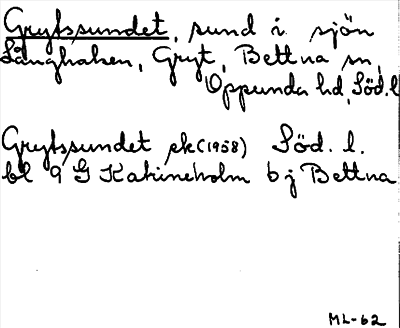 Grytssundet, sund i sjön
Långhalsen, Gryt, Bettna sn,
Oppunda hd, Söd. l
Grytssundet ek (1958) Söd. l.
bl 9 G Katrineholm 6 j Bettna
ML-62